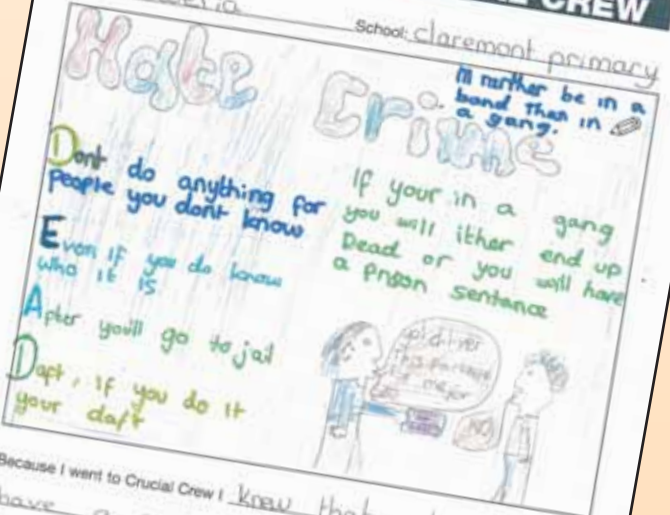 CREW
School: claremont primary
Hate
Crime
I'll rarther be in a
band than in
a gang.
Dont do anything for
People you dont know
Even if you do know
who it is
After you'll go to jail
Daft, if you do it
your daft
If your in a gang
you will ither end up
Dead or you will have
a prison sentance
go diliver
this package
major
NO
Because I went to Crucial Crew I knew that
have